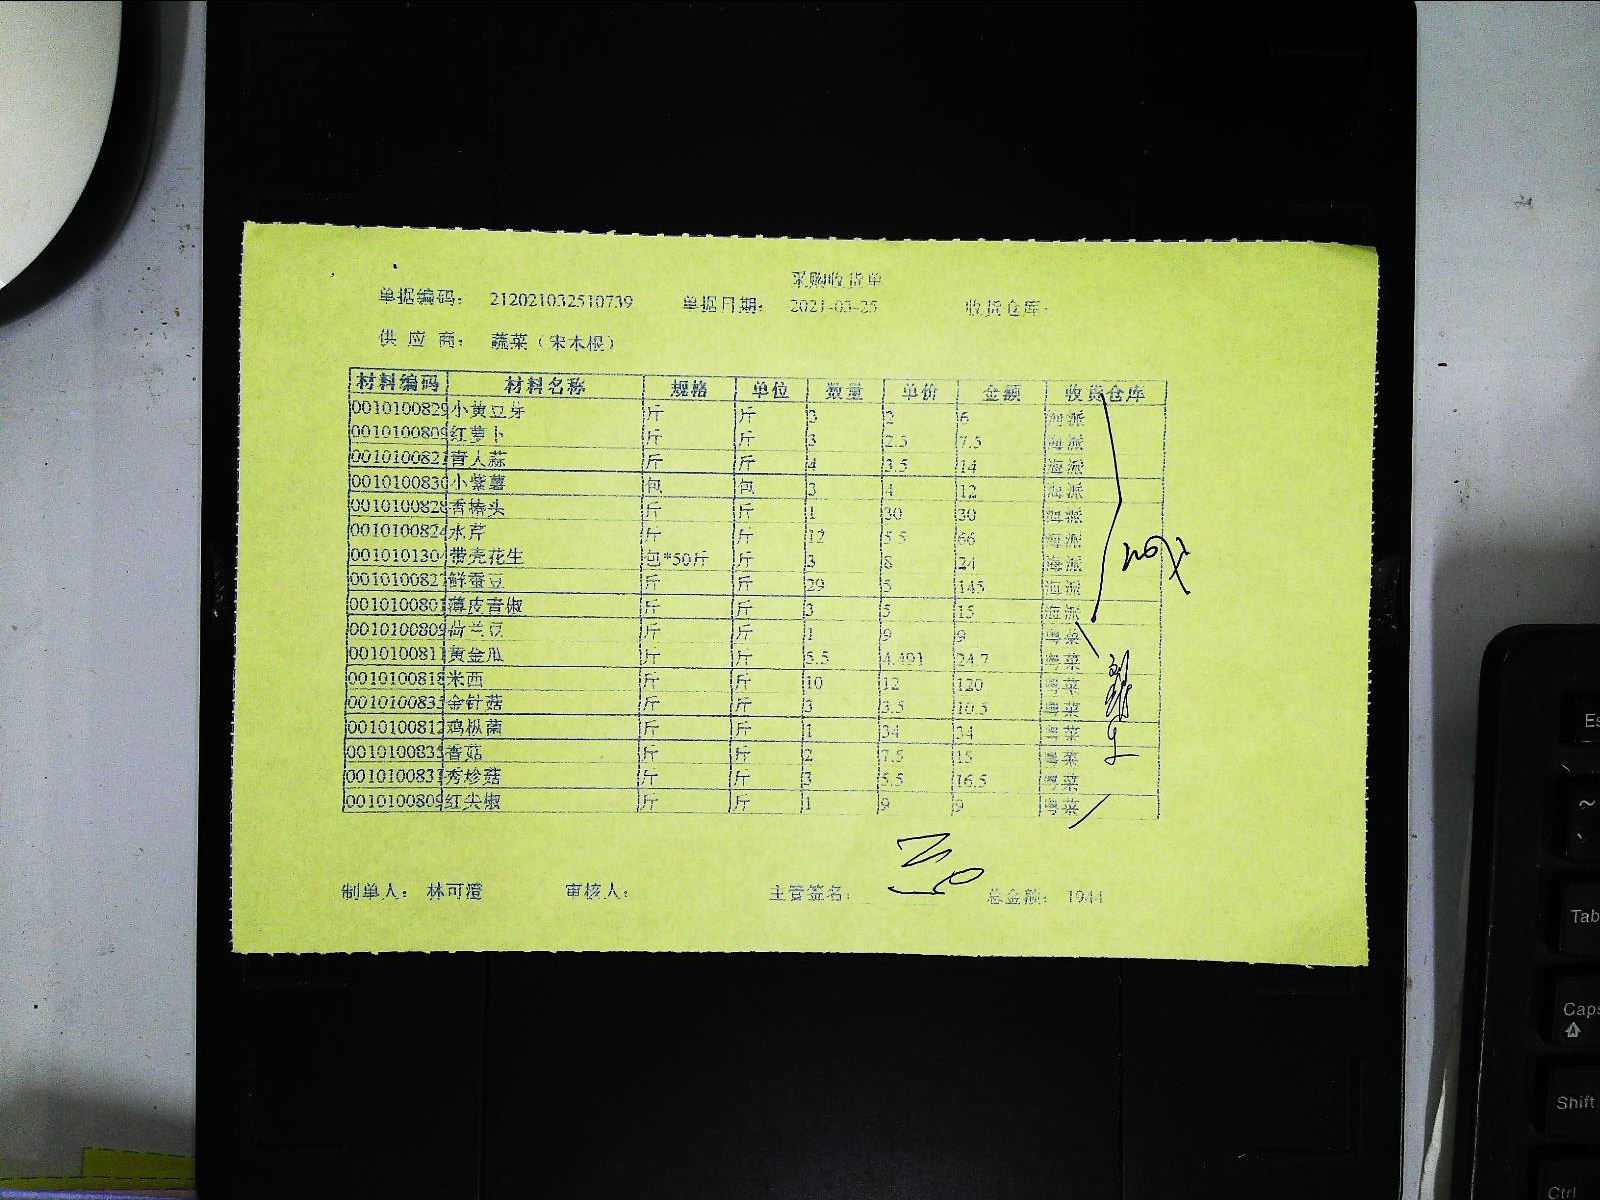 采购收货单
单据编码： 212021032510739 单据日期： 2021-03-25 收货仓库：
供 应 商： 蔬菜（宋木根）
材料编码 材料名称 规格 单位 数量 单价 金额 收货仓库
0010100829 小黄豆芽 斤 斤 3 2 6 海派
0010100809 红萝卜 斤 斤 3 2.5 7.5 海派
001010082 青大蒜 斤 斤 4 3.5 14 海派
0010100830 小紫薯 包 包 3 4 12 海派
0010100828 香椿头 斤 斤 1 30 30 海派
0010100824 水芹 斤 斤 12 5.5 66 海派
001010130 带壳花生 包*50斤 斤 3 8 24 海派
001010082 鲜蚕豆 斤 斤 29 5 145 海派
001010080 薄皮青椒 斤 斤 3 5 15 海派
0010100809 荷兰豆 斤 斤 1 9 9 粤菜
001010081 黄金瓜 斤 斤 5.5 4.491 24.7 粤菜
0010100818 米西 斤 斤 10 12 120 粤菜
001010083 金针菇 斤 斤 3 3.5 10.5 粤菜
0010100812 鸡枞菌 斤 斤 1 34 34 粤菜
001010083 香菇 斤 斤 2 7.5 15 粤菜
001010083 秀珍菇 斤 斤 3 5.5 16.5 粤菜
0010100809 红尖椒 斤 斤 1 9 9 粤菜
制单人： 林可澄 审核人： 主管签名： 总金额： 1944